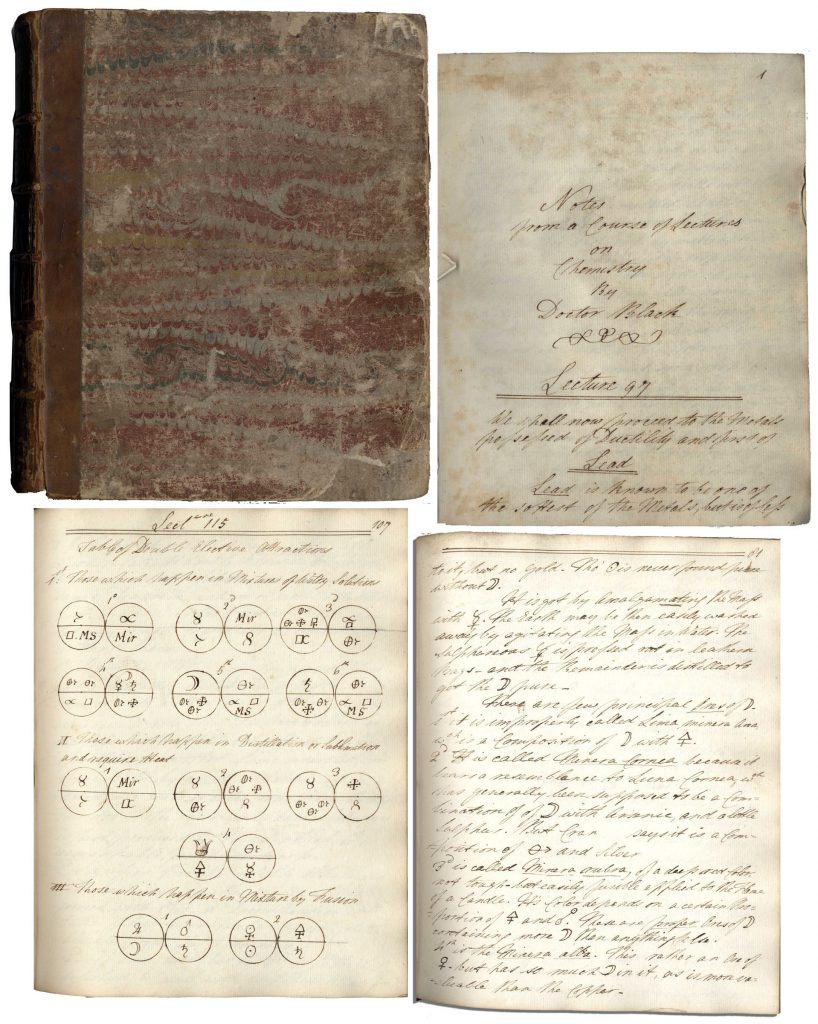 1
Notes
from a Course of Lectures
on
Chemistry
By
Doctor Black
Lecture 97
We shall now proceed to the Metals
possessed of Ductility and first of
Lead
Lead is known to be one of
the softest of the Metals, but is of less
Lect^ure 115 107
Table of Double Elective Attractions
I. Those which happen in Mixture of Watry Solutions
1° 2° 3°
Mir
MS Mir
4° 5° 6°
MS MS
II Those which happen in Distillation or Sublimation
and require Heat
1 2 3
Mir
4
III Those which happen in Mixture by Fusion
1 2
♃ ♂ ☉
☽ ♄ ☉ ♄
to it, but no Gold. The is never found pure
without ☽.
It is got by Amalgamating the Mass
with ☿. The Earth may be then easily washed
away by agitating the Mass in Water. The
☿ is pressed out in leathern
Bags – and the Remainder is distilled to
get the ☽ pure –
There are few principal Ores of ☽.
1st it is improperly called Luna minera
wch is a Composition of ☽ with 🜍.
2d It is called Minera Cornea because it
bears a resemblance to Luna Cornea, wch
has generally been supposed to be a Com-
bination of of ☽ with Arsenic, and a little
Sulphur. But Cran says it is a Com-
position of and Silver
3d is called Minera rubra, of a deep red Color
not tough – but easily fusible applied to the Flame
of a Candle. His Color depends on a certain Pro-
portion of 🜍 and ♂. There are Ores of ☽
containing more ☽ than anything else.
4th is the Minera alba. This rather an Ore of
♀ – but has so much ☽ in it, as is more va-
-luable than the Copper –